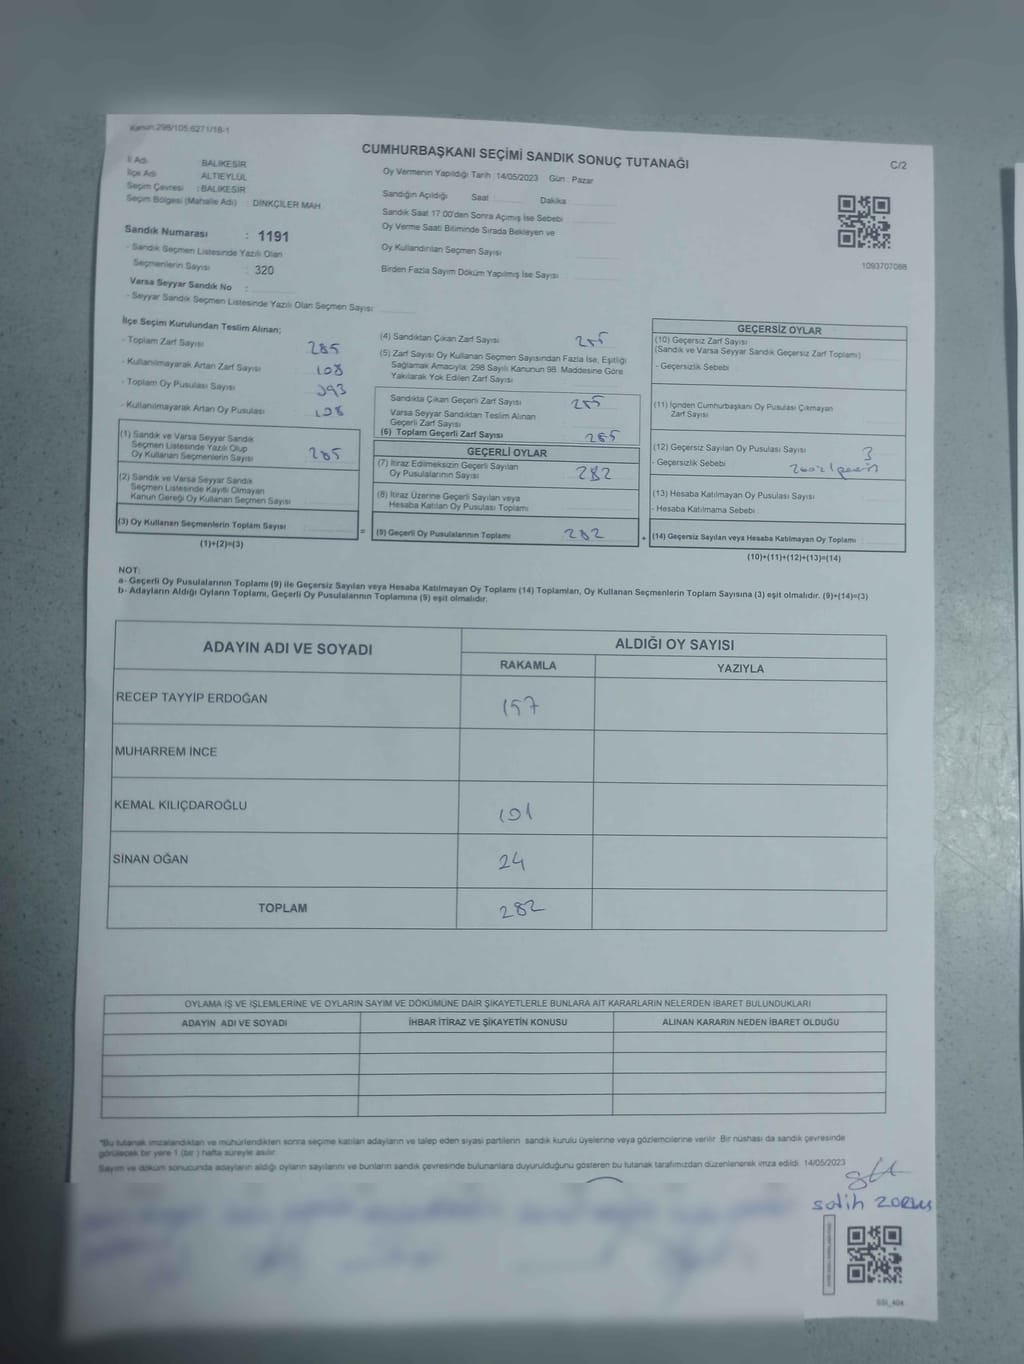 Kanun:298/105,6271/18-1
CUMHURBAŞKANI SEÇİMİ SANDIK SONUÇ TUTANAĞI
C/2
İl Adı BALIKESİR
İlçe Adı ALTIEYLÜL
Seçim Çevresi : BALIKESİR
Seçim Bölgesi (Mahalle Adı) : DİNKÇİLER MAH.
Oy Vermenin Yapıldığı Tarih : 14/05/2023 Gün : Pazar
Sandığın Açıldığı Saat Dakika
Sandık Saat 17.00'den Sonra Açımış İse Sebebi
Oy Verme Saati Bitiminde Sırada Bekleyen ve
Oy Kullandırılan Seçmen Sayısı
Birden Fazla Sayım Döküm Yapılmış İse Sayısı
1093707088
Sandık Numarası : 1191
- Sandık Seçmen Listesinde Yazılı Olan
Seçmenlerin Sayısı : 320
Varsa Seyyar Sandık No :
- Seyyar Sandık Seçmen Listesinde Yazılı Olan Seçmen Sayısı
İlçe Seçim Kurulundan Teslim Alınan;
- Toplam Zarf Sayısı 285
- Kullanılmayarak Artan Zarf Sayısı 108
- Toplam Oy Pusulası Sayısı 393
- Kullanılmayarak Artan Oy Pusulası 108
(1) Sandık ve Varsa Seyyar Sandık
Seçmen Listesinde Yazılı Olup
Oy Kullanan Seçmenlerin Sayısı 285
(2) Sandık ve Varsa Seyyar Sandık
Seçmen Listesinde Kayıtlı Olmayan
Kanun Gereği Oy Kullanan Seçmen Sayısı
(3) Oy Kullanan Seçmenlerin Toplam Sayısı
(1)+(2)=(3)
(4) Sandıktan Çıkan Zarf Sayısı 285
(5) Zarf Sayısı Oy Kullanan Seçmen Sayısından Fazla İse, Eşitliği
Sağlamak Amacıyla; 298 Sayılı Kanunun 98. Maddesine Göre
Yakılarak Yok Edilen Zarf Sayısı
Sandıkta Çıkan Geçerli Zarf Sayısı 285
Varsa Seyyar Sandıktan Teslim Alınan
Geçerli Zarf Sayısı
(6) Toplam Geçerli Zarf Sayısı 285
GEÇERLİ OYLAR
(7) İtiraz Edilmeksizin Geçerli Sayılan
Oy Pusulalarının Sayısı 282
(8) İtiraz Üzerine Geçerli Sayılan veya
Hesaba Katılan Oy Pusulası Toplamı
= (9) Geçerli Oy Pusulalarının Toplamı 282 +
GEÇERSİZ OYLAR
(10) Geçersiz Zarf Sayısı
(Sandık ve Varsa Seyyar Sandık Geçersiz Zarf Toplamı)
- Geçersizlik Sebebi
(11) İçinden Cumhurbaşkanı Oy Pusulası Çıkmayan
Zarf Sayısı
(12) Geçersiz Sayılan Oy Pusulası Sayısı 3
- Geçersizlik Sebebi
(13) Hesaba Katılmayan Oy Pusulası Sayısı
- Hesaba Katılmama Sebebi
(14) Geçersiz Sayılan veya Hesaba Katılmayan Oy Toplamı
(10)+(11)+(12)+(13)=(14)
NOT:
a- Geçerli Oy Pusulalarının Toplamı (9) ile Geçersiz Sayılan veya Hesaba Katılmayan Oy Toplamı (14) Toplamları, Oy Kullanan Seçmenlerin Toplam Sayısına (3) eşit olmalıdır. (9)+(14)=(3)
b- Adayların Aldığı Oyların Toplamı, Geçerli Oy Pusulalarının Toplamına (9) eşit olmalıdır.
ADAYIN ADI VE SOYADI
ALDIĞI OY SAYISI
RAKAMLA YAZIYLA
RECEP TAYYİP ERDOĞAN 157
MUHARREM İNCE
KEMAL KILIÇDAROĞLU 101
SİNAN OĞAN 24
TOPLAM 282
OYLAMA İŞ VE İŞLEMLERİNE VE OYLARIN SAYIM VE DÖKÜMÜNE DAİR ŞİKAYETLERLE BUNLARA AİT KARARLARIN NELERDEN İBARET BULUNDUKLARI
ADAYIN ADI VE SOYADI İHBAR İTİRAZ VE ŞİKAYETİN KONUSU ALINAN KARARIN NEDEN İBARET OLDUĞU
*Bu tutanak imzalandıktan ve mühürlendikten sonra seçime katılan adayların ve talep eden siyasi partilerin sandık kurulu üyelerine veya gözlemcilerine verilir. Bir nüshası da sandık çevresinde
görülecek bir yere 1 (bir) hafta süreyle asılır.
Sayım ve döküm sonucunda adayların aldığı oyların sayılarını ve bunların sandık çevresinde bulunanlara duyurulduğunu gösteren bu tutanak tarafımızdan düzenlenerek imza edildi. 14/05/2023